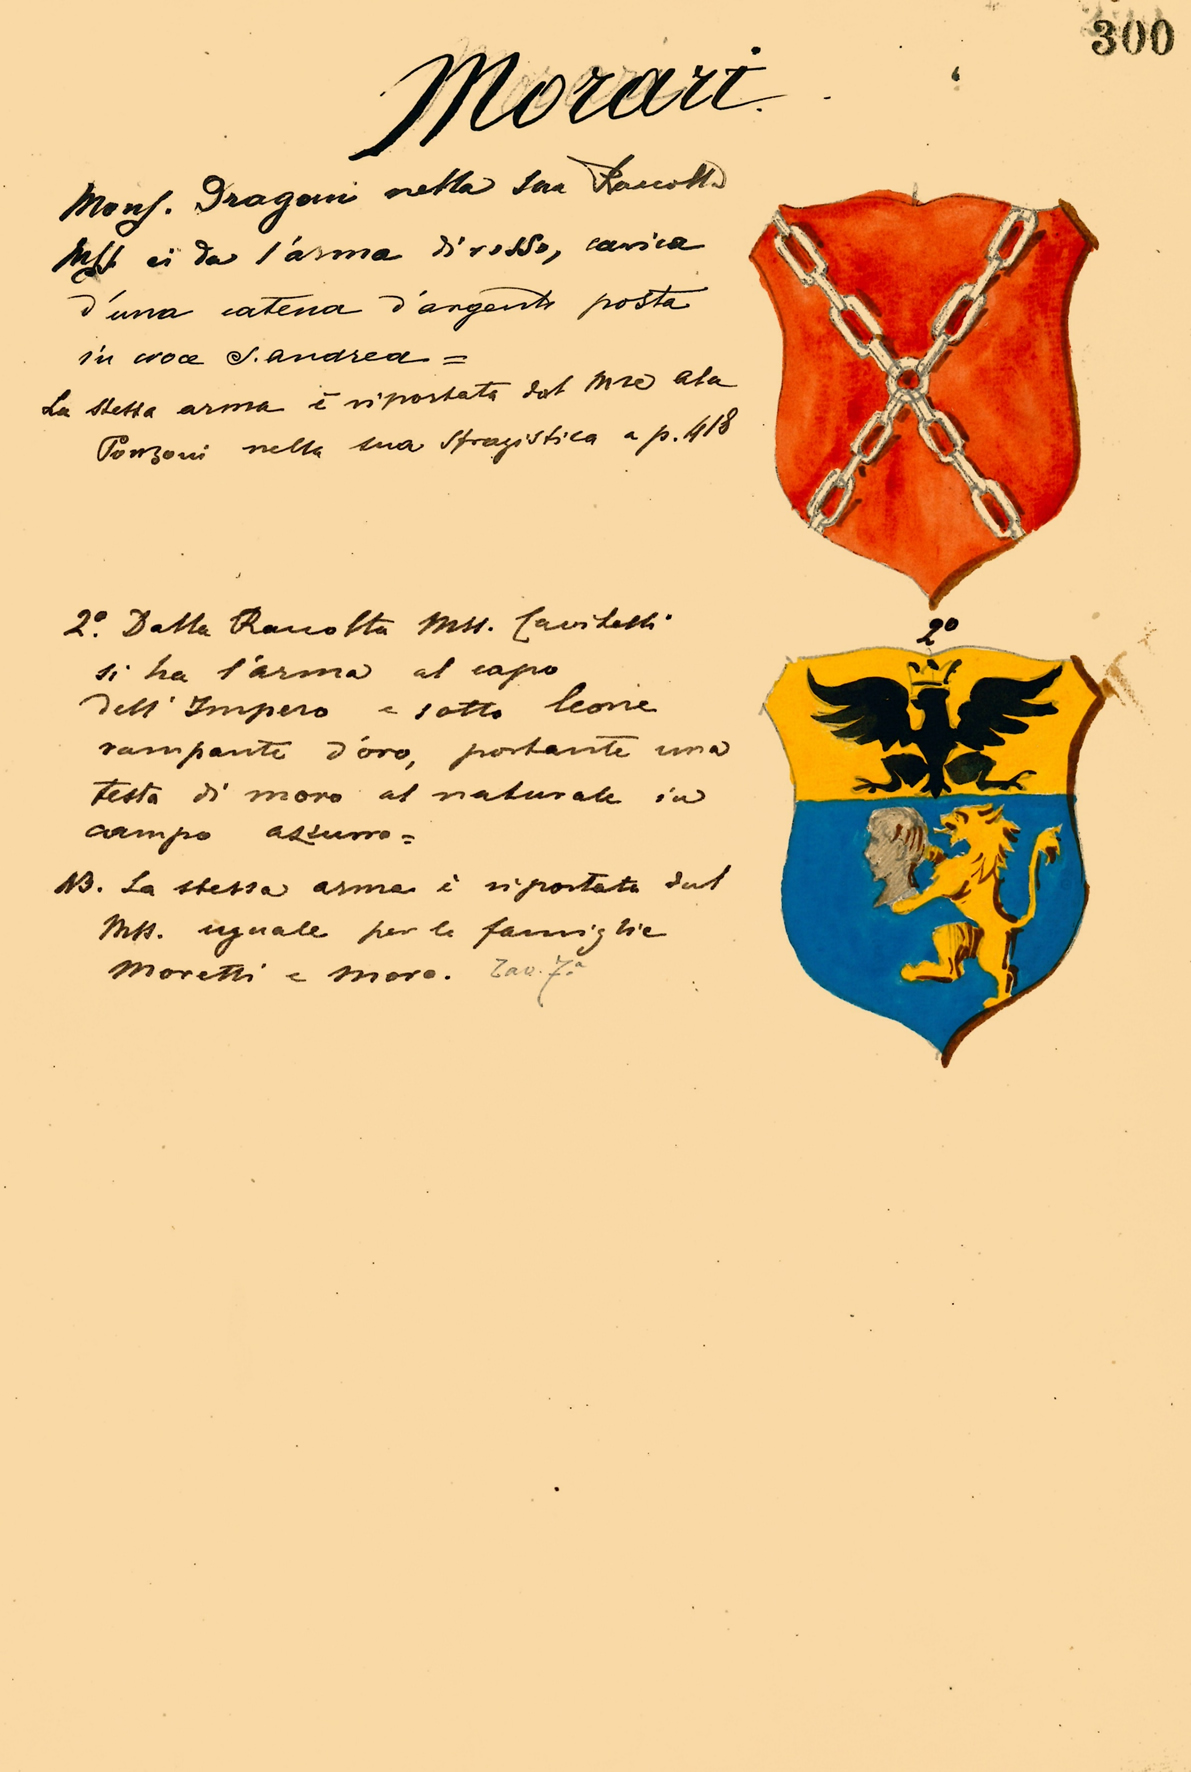 300
Morari.
Mons. Dragoni nella sua Raccolta
Mss ci da l'arma di rosso, carica
d'una catena d'argento posta
in croce S. andrea =
La stessa arma è riportata dal Mse Ala
Ponzoni nella sua Sfragistica a p. 418
2º. Dalla Raccolta Mss. Cavitelli
si ha l'arma al capo
dell'Impero e sotto leone
rampante d'oro, portante una
testa di moro al naturale in
campo azzurro =
NB. La stessa arma è riportata dal
Mss. uguale per le famiglie
Moretti e Moro. Tav. 7ª
2º